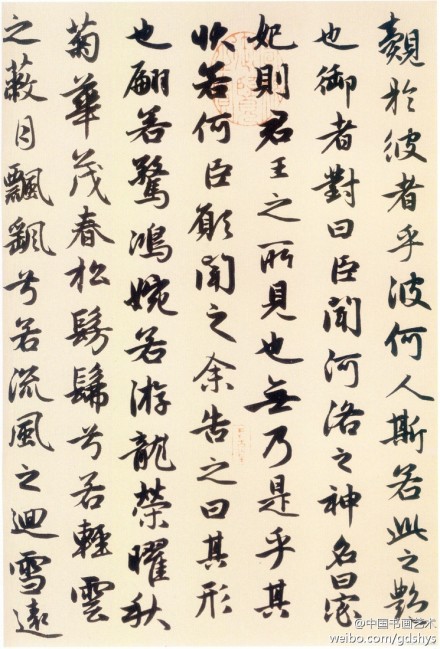 覿於彼者乎彼何人斯若此之艷
也御者對曰臣聞河洛之神名曰宓
妃則君王之所見也無乃是乎其
狀若何臣願聞之余告之曰其形
也翩若驚鴻婉若游龍榮曜秋
菊華茂春松髣髴兮若輕雲
之蔽月飄颻兮若流風之迴雪遠
@中国书画艺术
weibo.com/gdshys